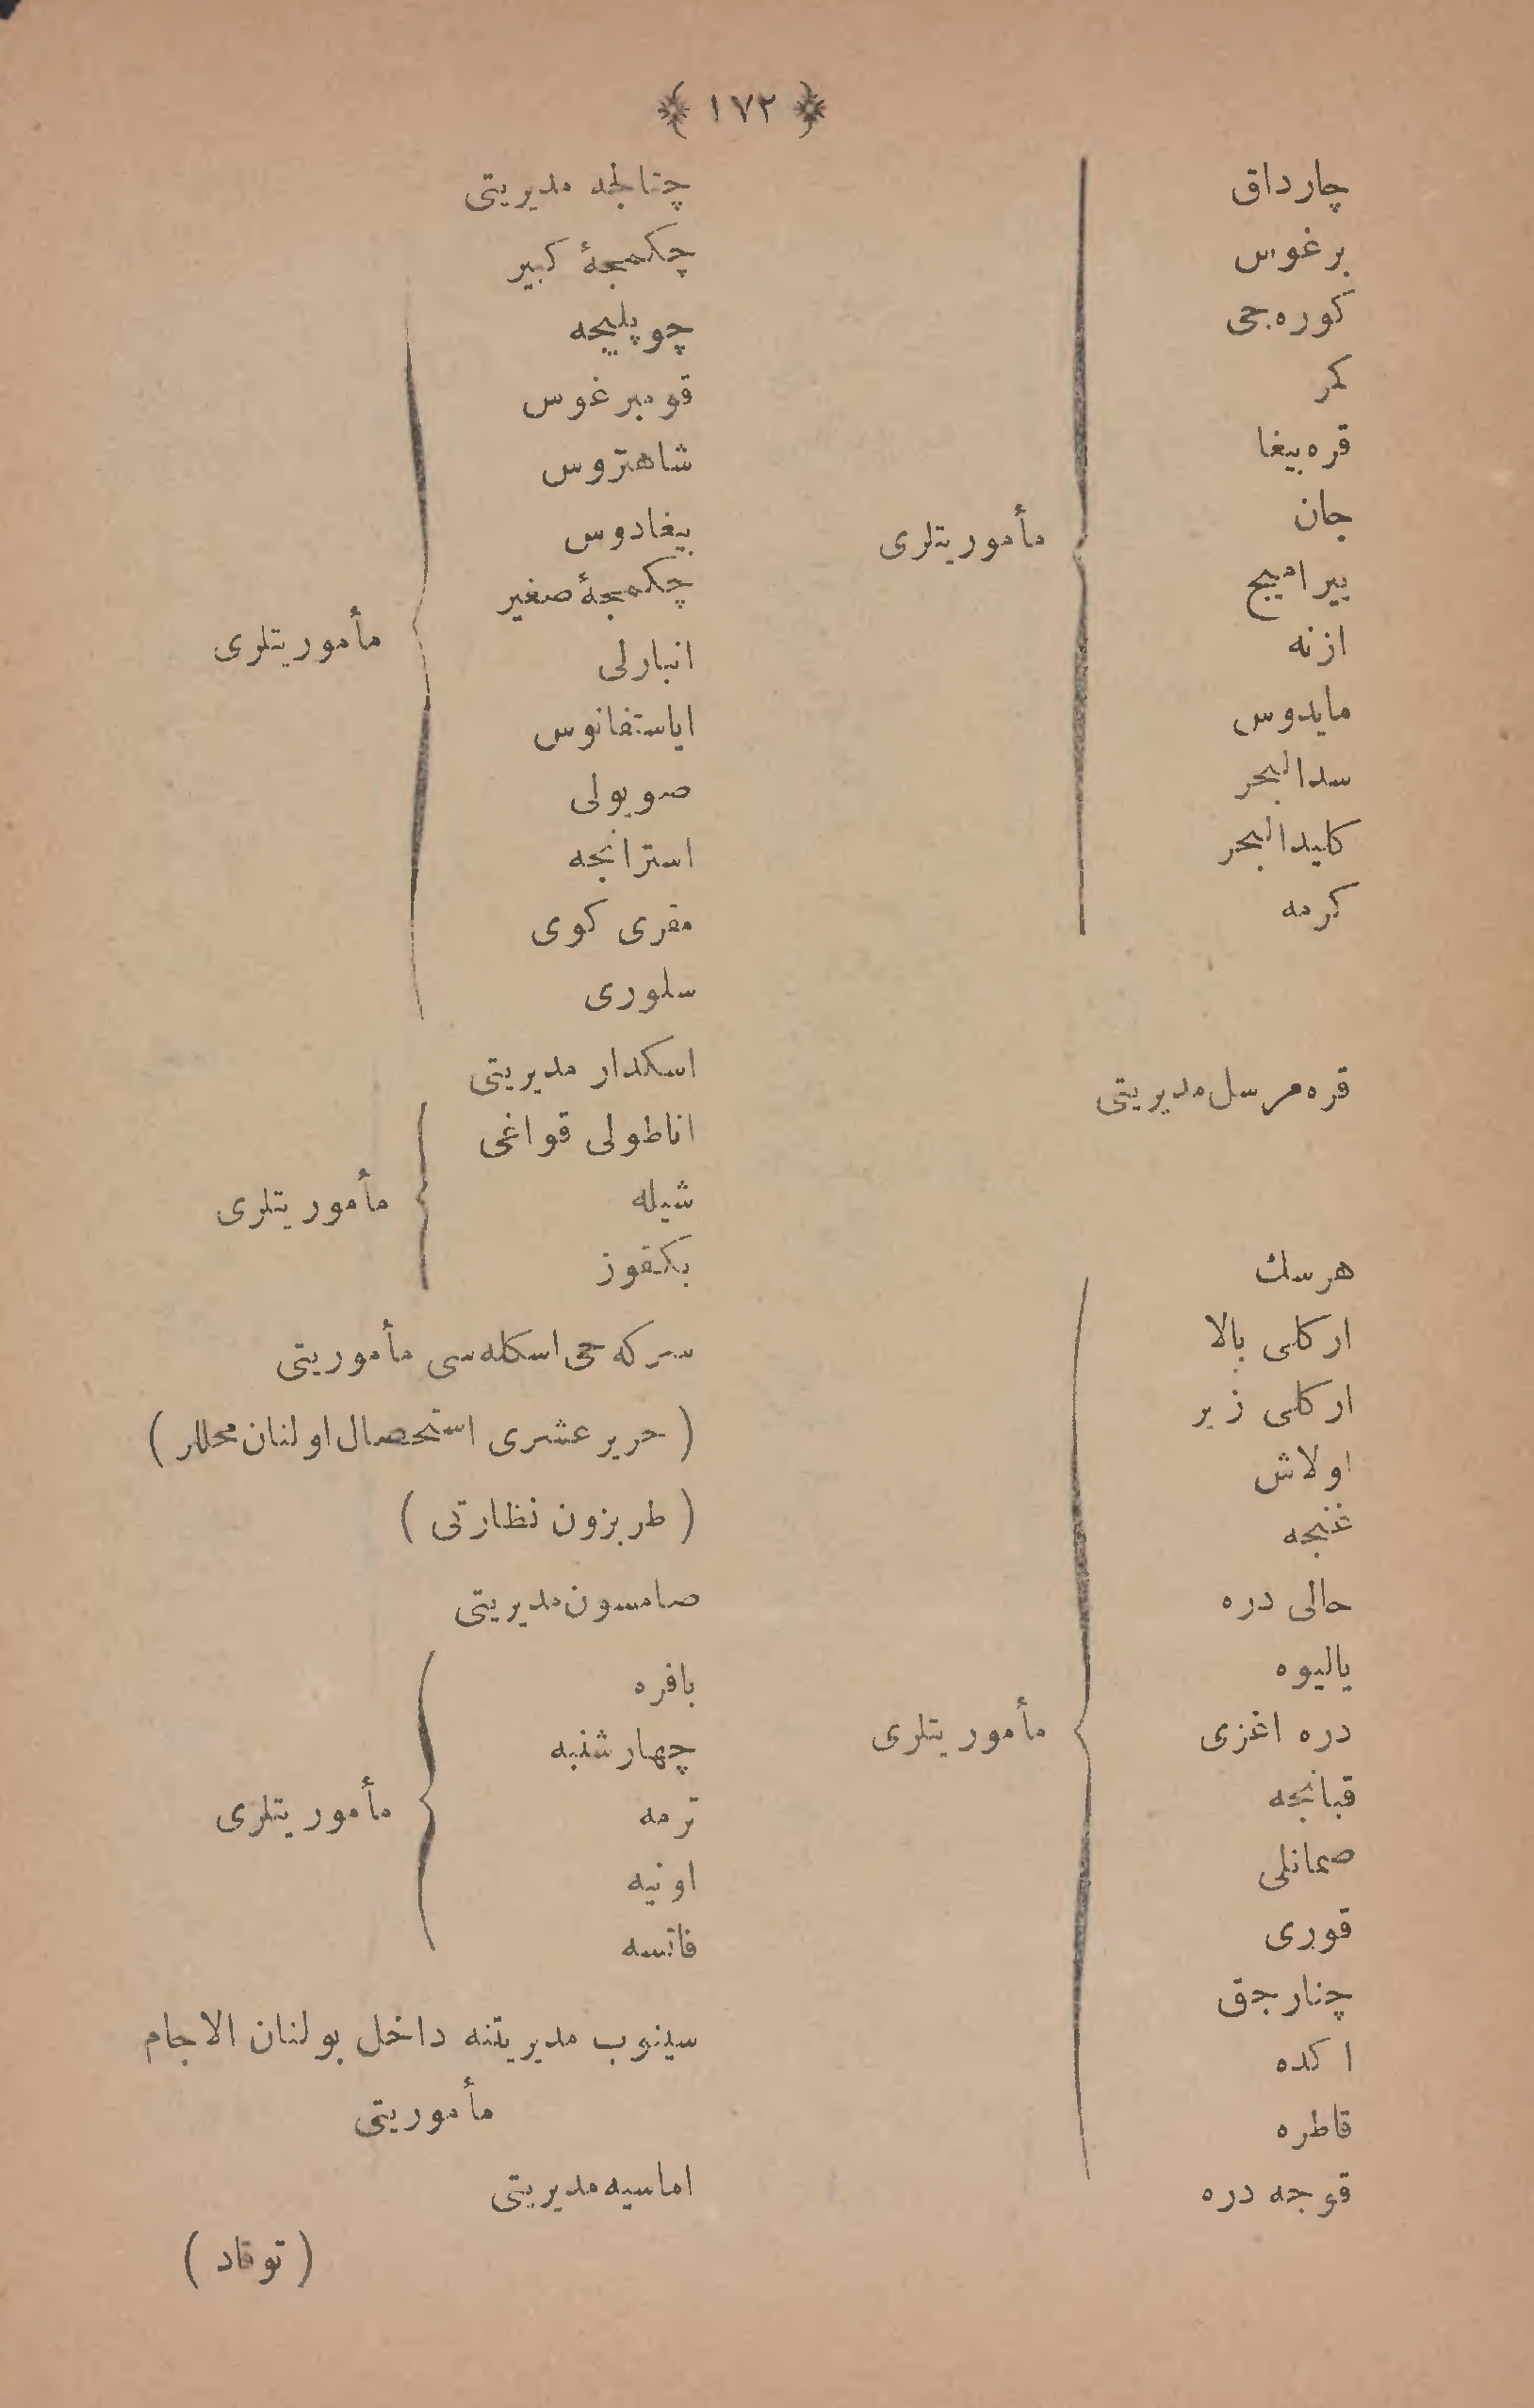 ﴿ ١٧٢ ﴾
چارداق
برغوس
كوره‌جی
كمر
قره‌بیغا
جان
بیرامیج
ازنه
مایدوس
سدالبحر
كلیدالبحر
كرمه
مأموریتلری
قره‌مرسل مدیریتی
هرسك
اركلی بالا
اركلی زیر
اولاش
غنجه
حالی دره
یالیوه
دره اغزی
قبانجه
صمانلی
قوری
چنارجق
اكده
قاطره
قوجه دره
مأموریتلری
چتالجه مدیریتی
چكمجهٔ كبیر
چوپلیجه
قومبرغوس
شاهتروس
بیغادوس
چكمجهٔ صغیر
انبارلی
ایاستفانوس
صوبولی
استرانجه
مقری كوی
سلوری
مأموریتلری
اسكدار مدیریتی
اناطولی قواغی
شیله
بكقوز
مأموریتلری
سركه‌جی اسكله‌سی مأموریتی
( حریر عشری استحصال اولنان محللر )
( طربزون نظارتی )
صامسون مدیریتی
بافره
چهارشنبه
ترمه
اونیه
فاتسه
مأموریتلری
سینوب مدیریتنه داخل بولنان الاجام
مأموریتی
اماسیه مدیریتی
( توقاد )